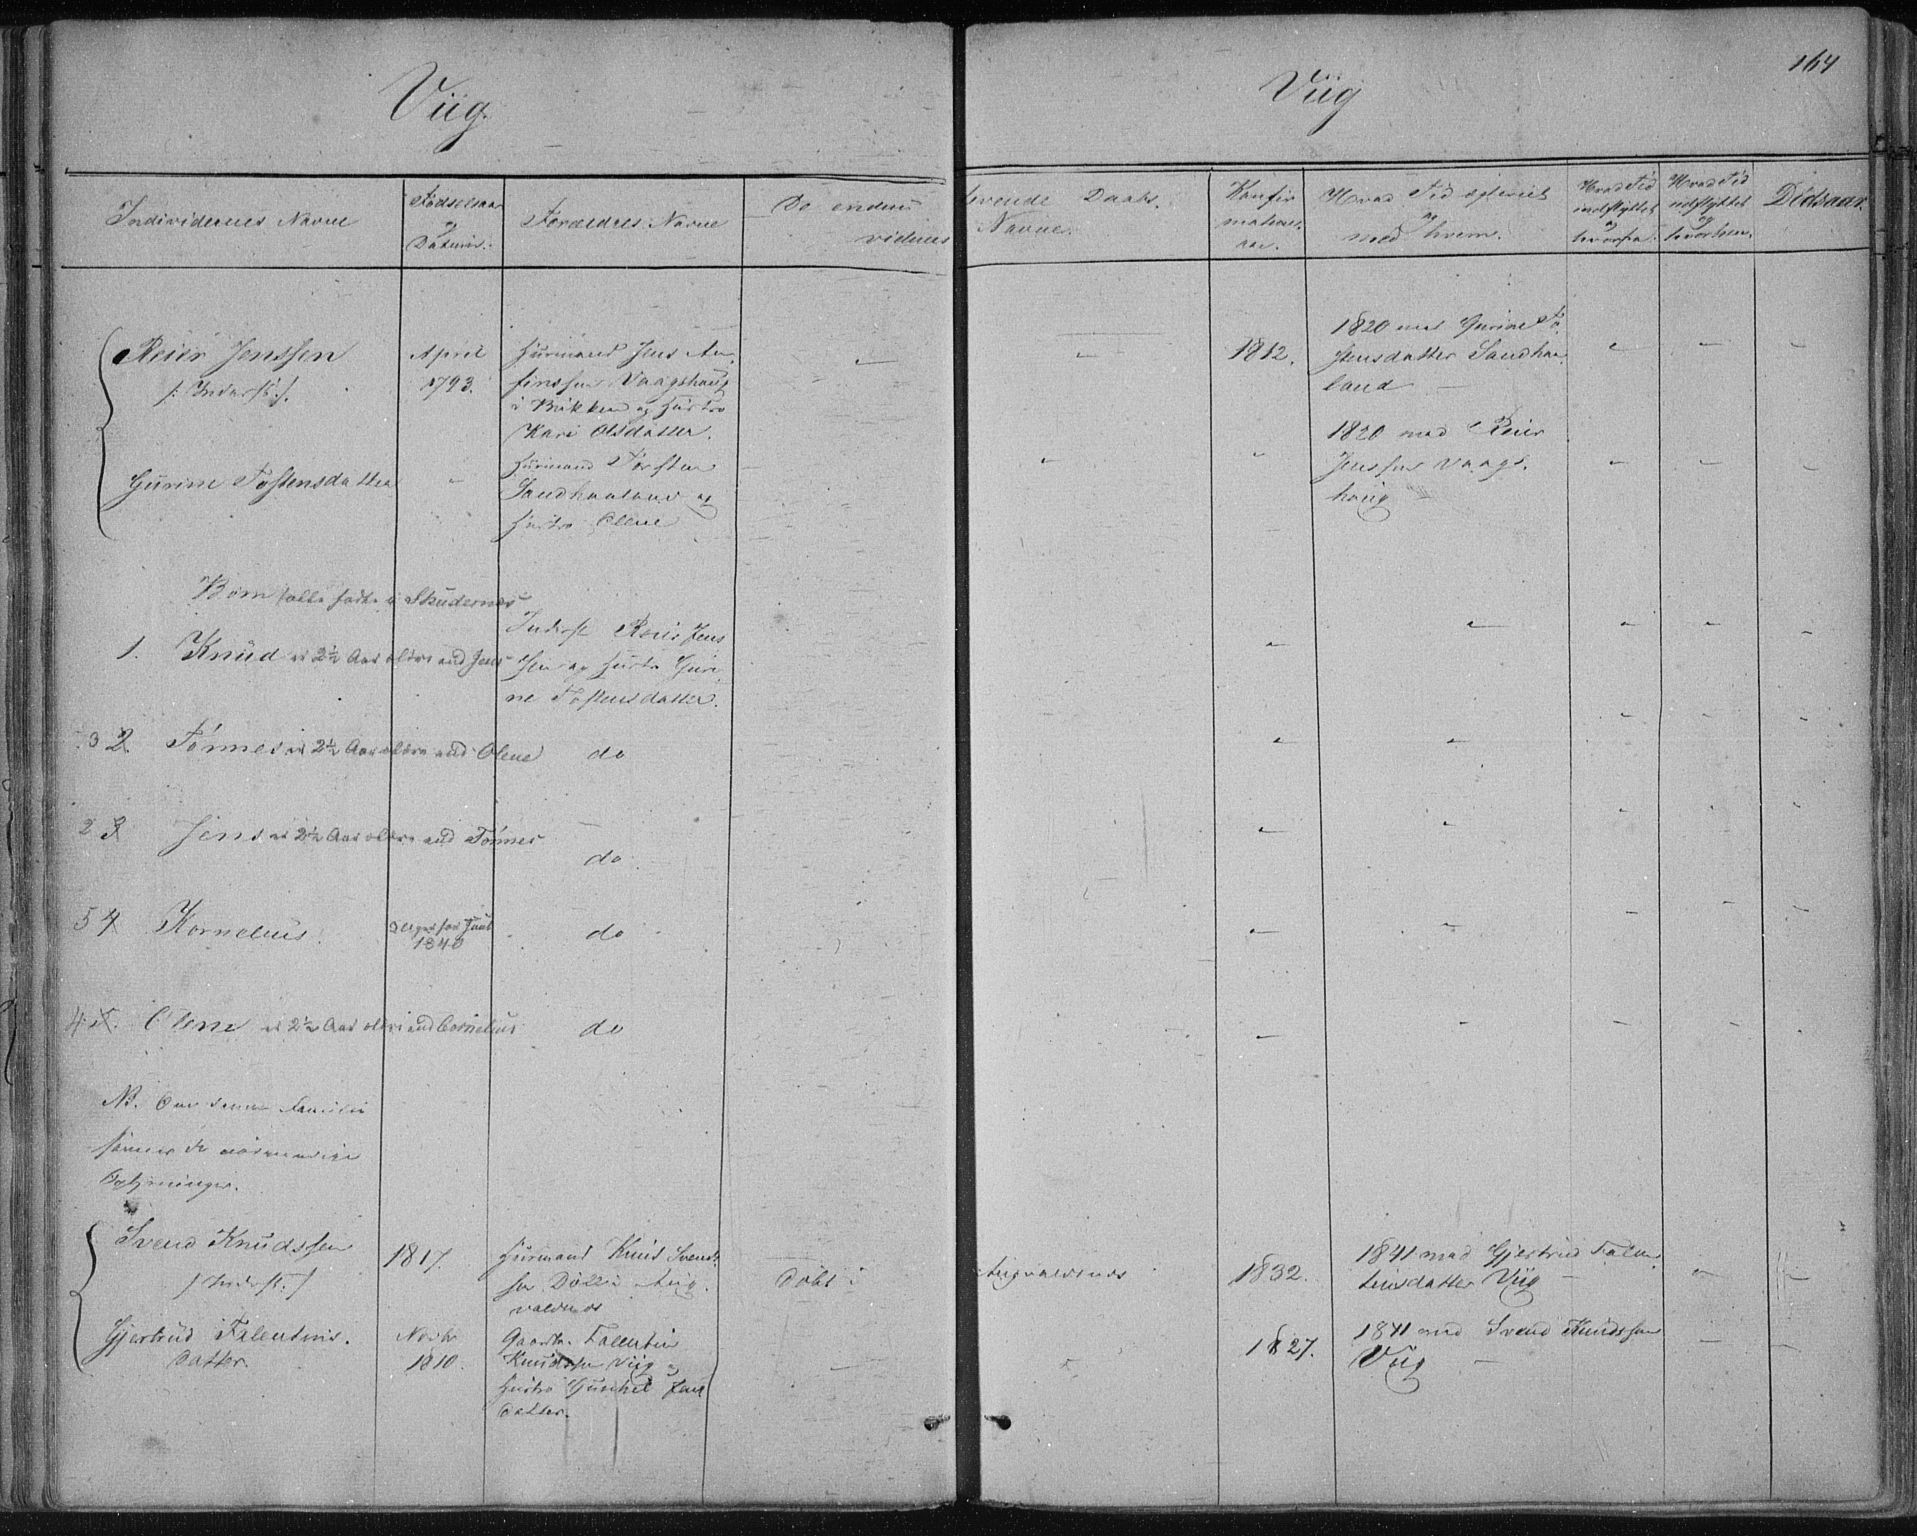 164
Viig.
Viig
Individernes Navne
Fødselsaar
og
Datum.
Forældres Navne
vidnes
levende Daabs
Navne.
Konfir
mations
aar.
Hvad Tid egteviet
og
med hvem.
Hvad Tid
indflyttet
og
hvorfra.
Hvad Tid
udflyttet
og
hvorhen.
Dødsaar.
Reier Jenssen
/: Inderst :/.
April
1793.
Huusmand Jens
Vaagshaug
i Bukken og Hustro
Kari Olsdatter.
1812.
1820 med Gurine To
stensdatter Sandhaa
land
Gurine Tostensdatter
Huusmand Torsten
Sandhaaland og
Hustro Olene
1820 med Reier
Jenssen Vaags
haug
Børn alle fødte i Skudernes
1. Knud er 2½ Aar ældre end Jens
Inderst Reier Jens
sen og Hustr Guri
ne Tostensdatter.
3 2 Tønnes er 2½ Aar ældre end Olene
do
2 3 Jens er 2½ Aar ældre end Tønnes
do
5 4 Kornelius.
2 Uger før Juul
1840
do
4 5. Olene er 2½ Aar ældre end Cornelius
do
NB. Om denne Familie
savnes de nødvendige
Oplysninger.
Svend Knudssen
/ Inderst. /
1817.
Huusmand Knud Svend
sen Døle i Aug
valdnes
Døbt i
Augvaldsnes
1832.
1841 med Gjertrud Falen
tinsdatter Viig
Gjertrud Falentins.
datter.
Novbr
1810.
Gaardm. Falentin
Knudssen Viig og
Hustro Jens
datter.
1827.
1841 med Svend Knudssen
Viig